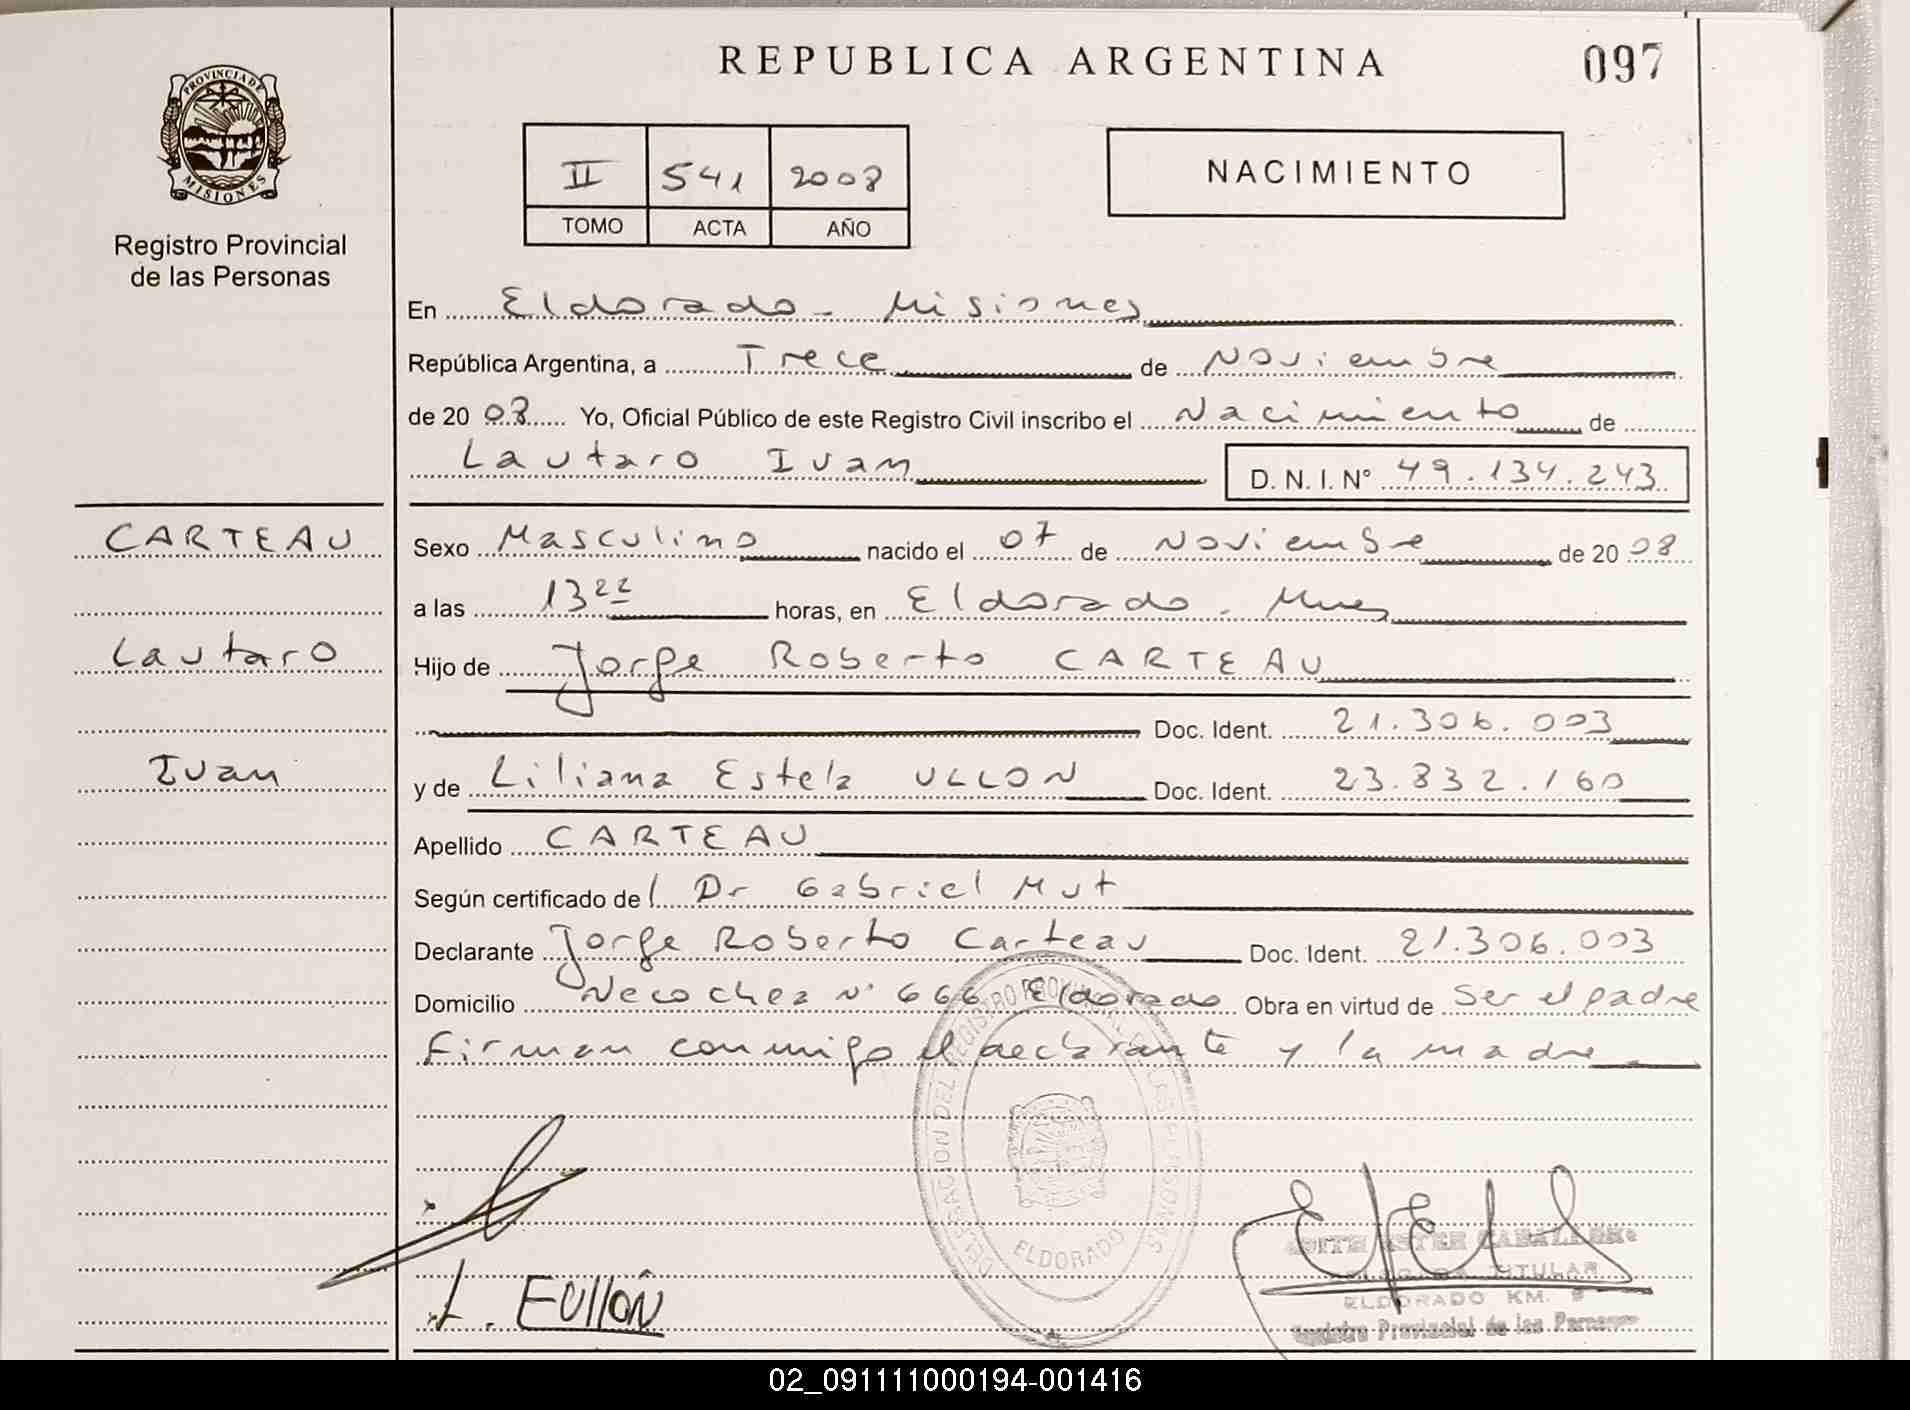 REPUBLICA ARGENTINA
097
PROVINCIA DE MISIONES
Registro Provincial
de las Personas
II 541 2008
TOMO ACTA AÑO
NACIMIENTO
En Eldorado - Misiones
República Argentina, a Trece de Noviembre
de 2008 Yo, Oficial Público de este Registro Civil inscribo el Nacimiento de
Lautaro Ivan D. N. I. N° 49.134.243
CARTEAU
Lautaro
Ivan
Sexo Masculino nacido el 07 de Noviembre de 2008
a las 13 22 horas, en Eldorado - Mnes
Hijo de Jorge Roberto CARTEAU
Doc. Ident. 21.306.003
y de Liliana Estela ULLON Doc. Ident. 23.832.160
Apellido CARTEAU
Según certificado de l Dr Gabriel Mut
Declarante Jorge Roberto Carteau Doc. Ident. 21.306.003
Domicilio Necochea N° 666 Eldorado Obra en virtud de ser el padre
Firman conmigo el declarante y la madre
DELEGACION DEL REGISTRO PROVINCIAL DE LAS PERSONAS
ELDORADO
L. EUllón
EDITH ESTER CABALLERO
DELEGADA TITULAR
ELDORADO KM.
Registro Provincial de las Personas
02_091111000194-001416